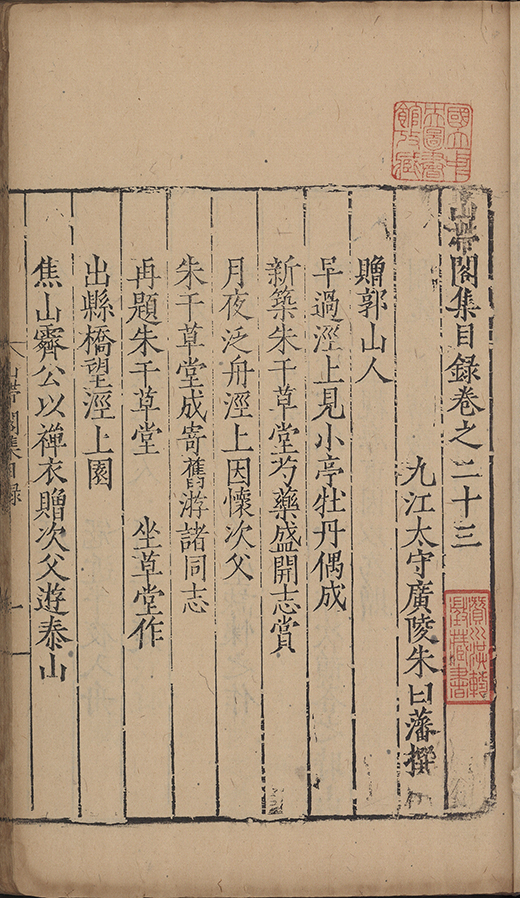 山帶閣集目録卷之二十三
九江太守廣陵朱曰藩撰
贈郭山人
早過涇上見小亭牡丹偶成
新築朱干草堂芍藥盛開志賞
月夜泛舟涇上因懷次父
朱干草堂成寄舊游諸同志
再題朱干草堂 坐草堂作
出縣橋望涇上園
焦山霽公以禪衣贈次父遊泰山
山帶閣集目録
一
國立中央圖書館收藏